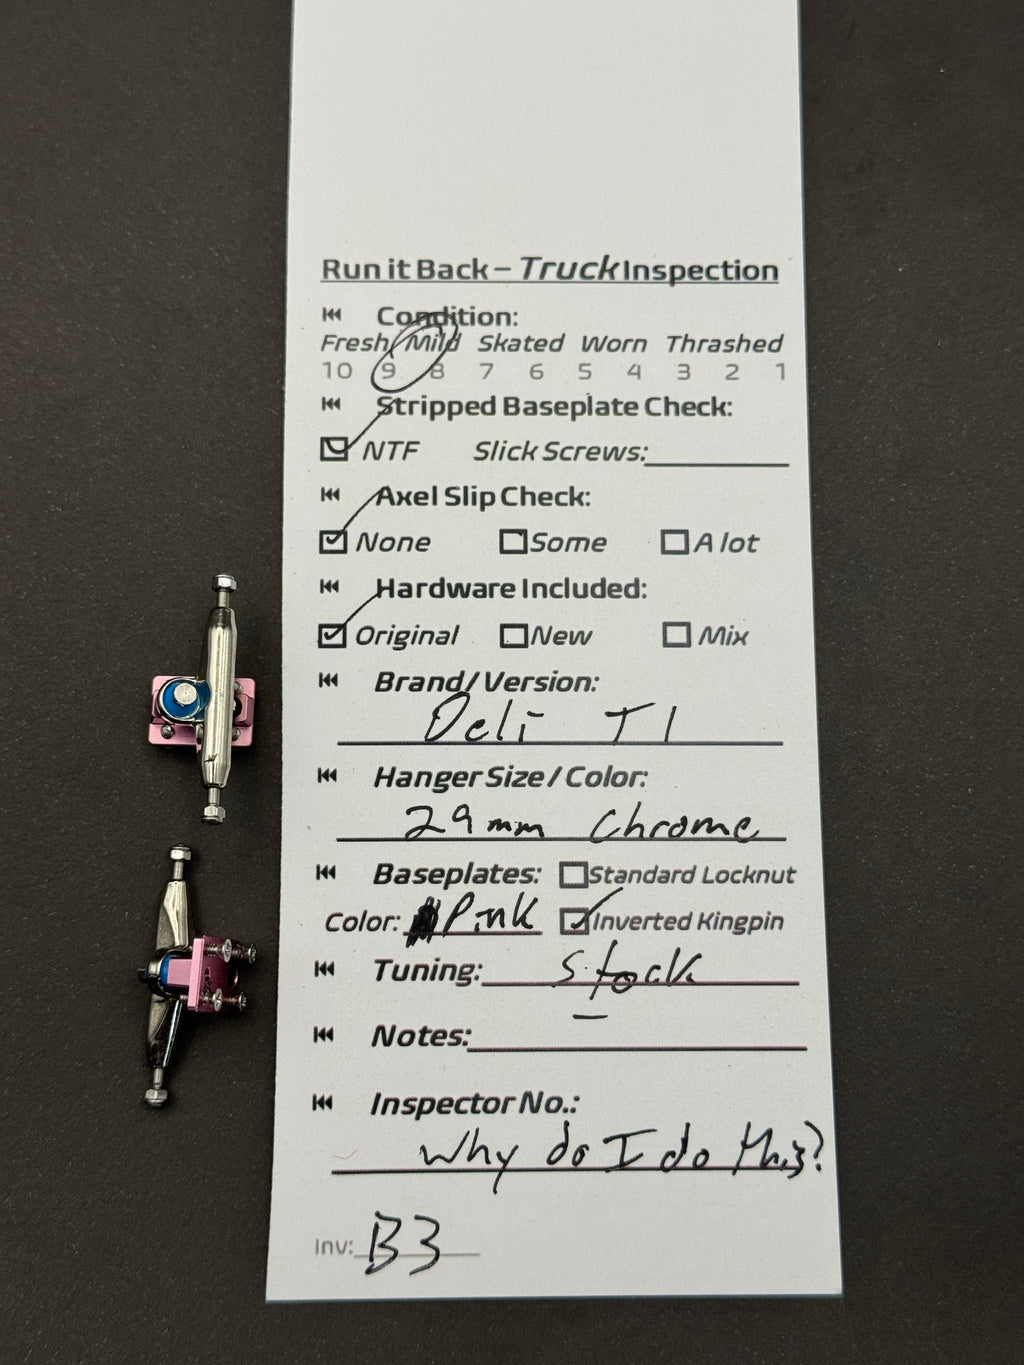 Run it Back – Truck Inspection
Condition:
Fresh Mild Skated Worn Thrashed
10 9 8 7 6 5 4 3 2 1
Stripped Baseplate Check:
NTF Slick Screws:
Axel Slip Check:
None Some A lot
Hardware Included:
Original New Mix
Brand/Version:
Deli T1
Hanger Size / Color:
29mm Chrome
Baseplates: Standard Locknut
Color: Pink Inverted Kingpin
Tuning: Stock
Notes: –
Inspector No.:
Why do I do this?
Inv: B3